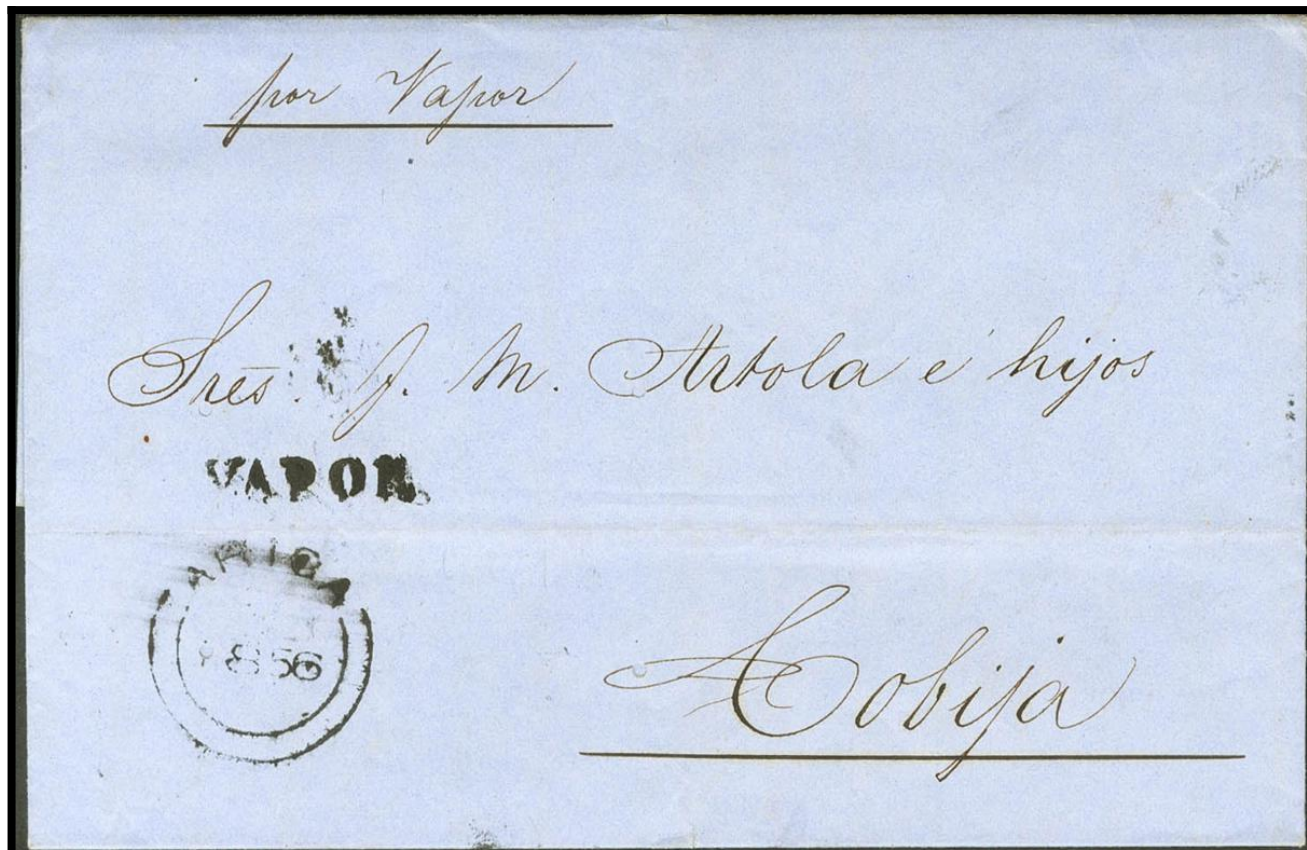 por Vapor
Sres. J. M. Artola é hijos
VAPOR
ARICA
1856
Cobija